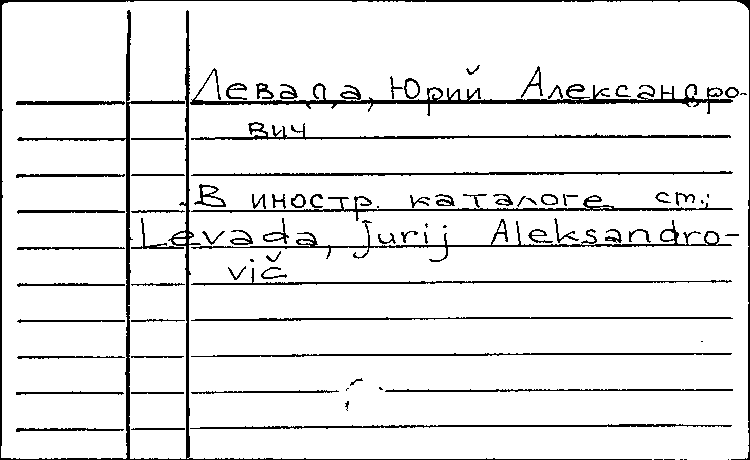 Левада, Юрий Александро-
вич
В иностр. каталоге см.:
Levada, Jurij Aleksandro-
vič